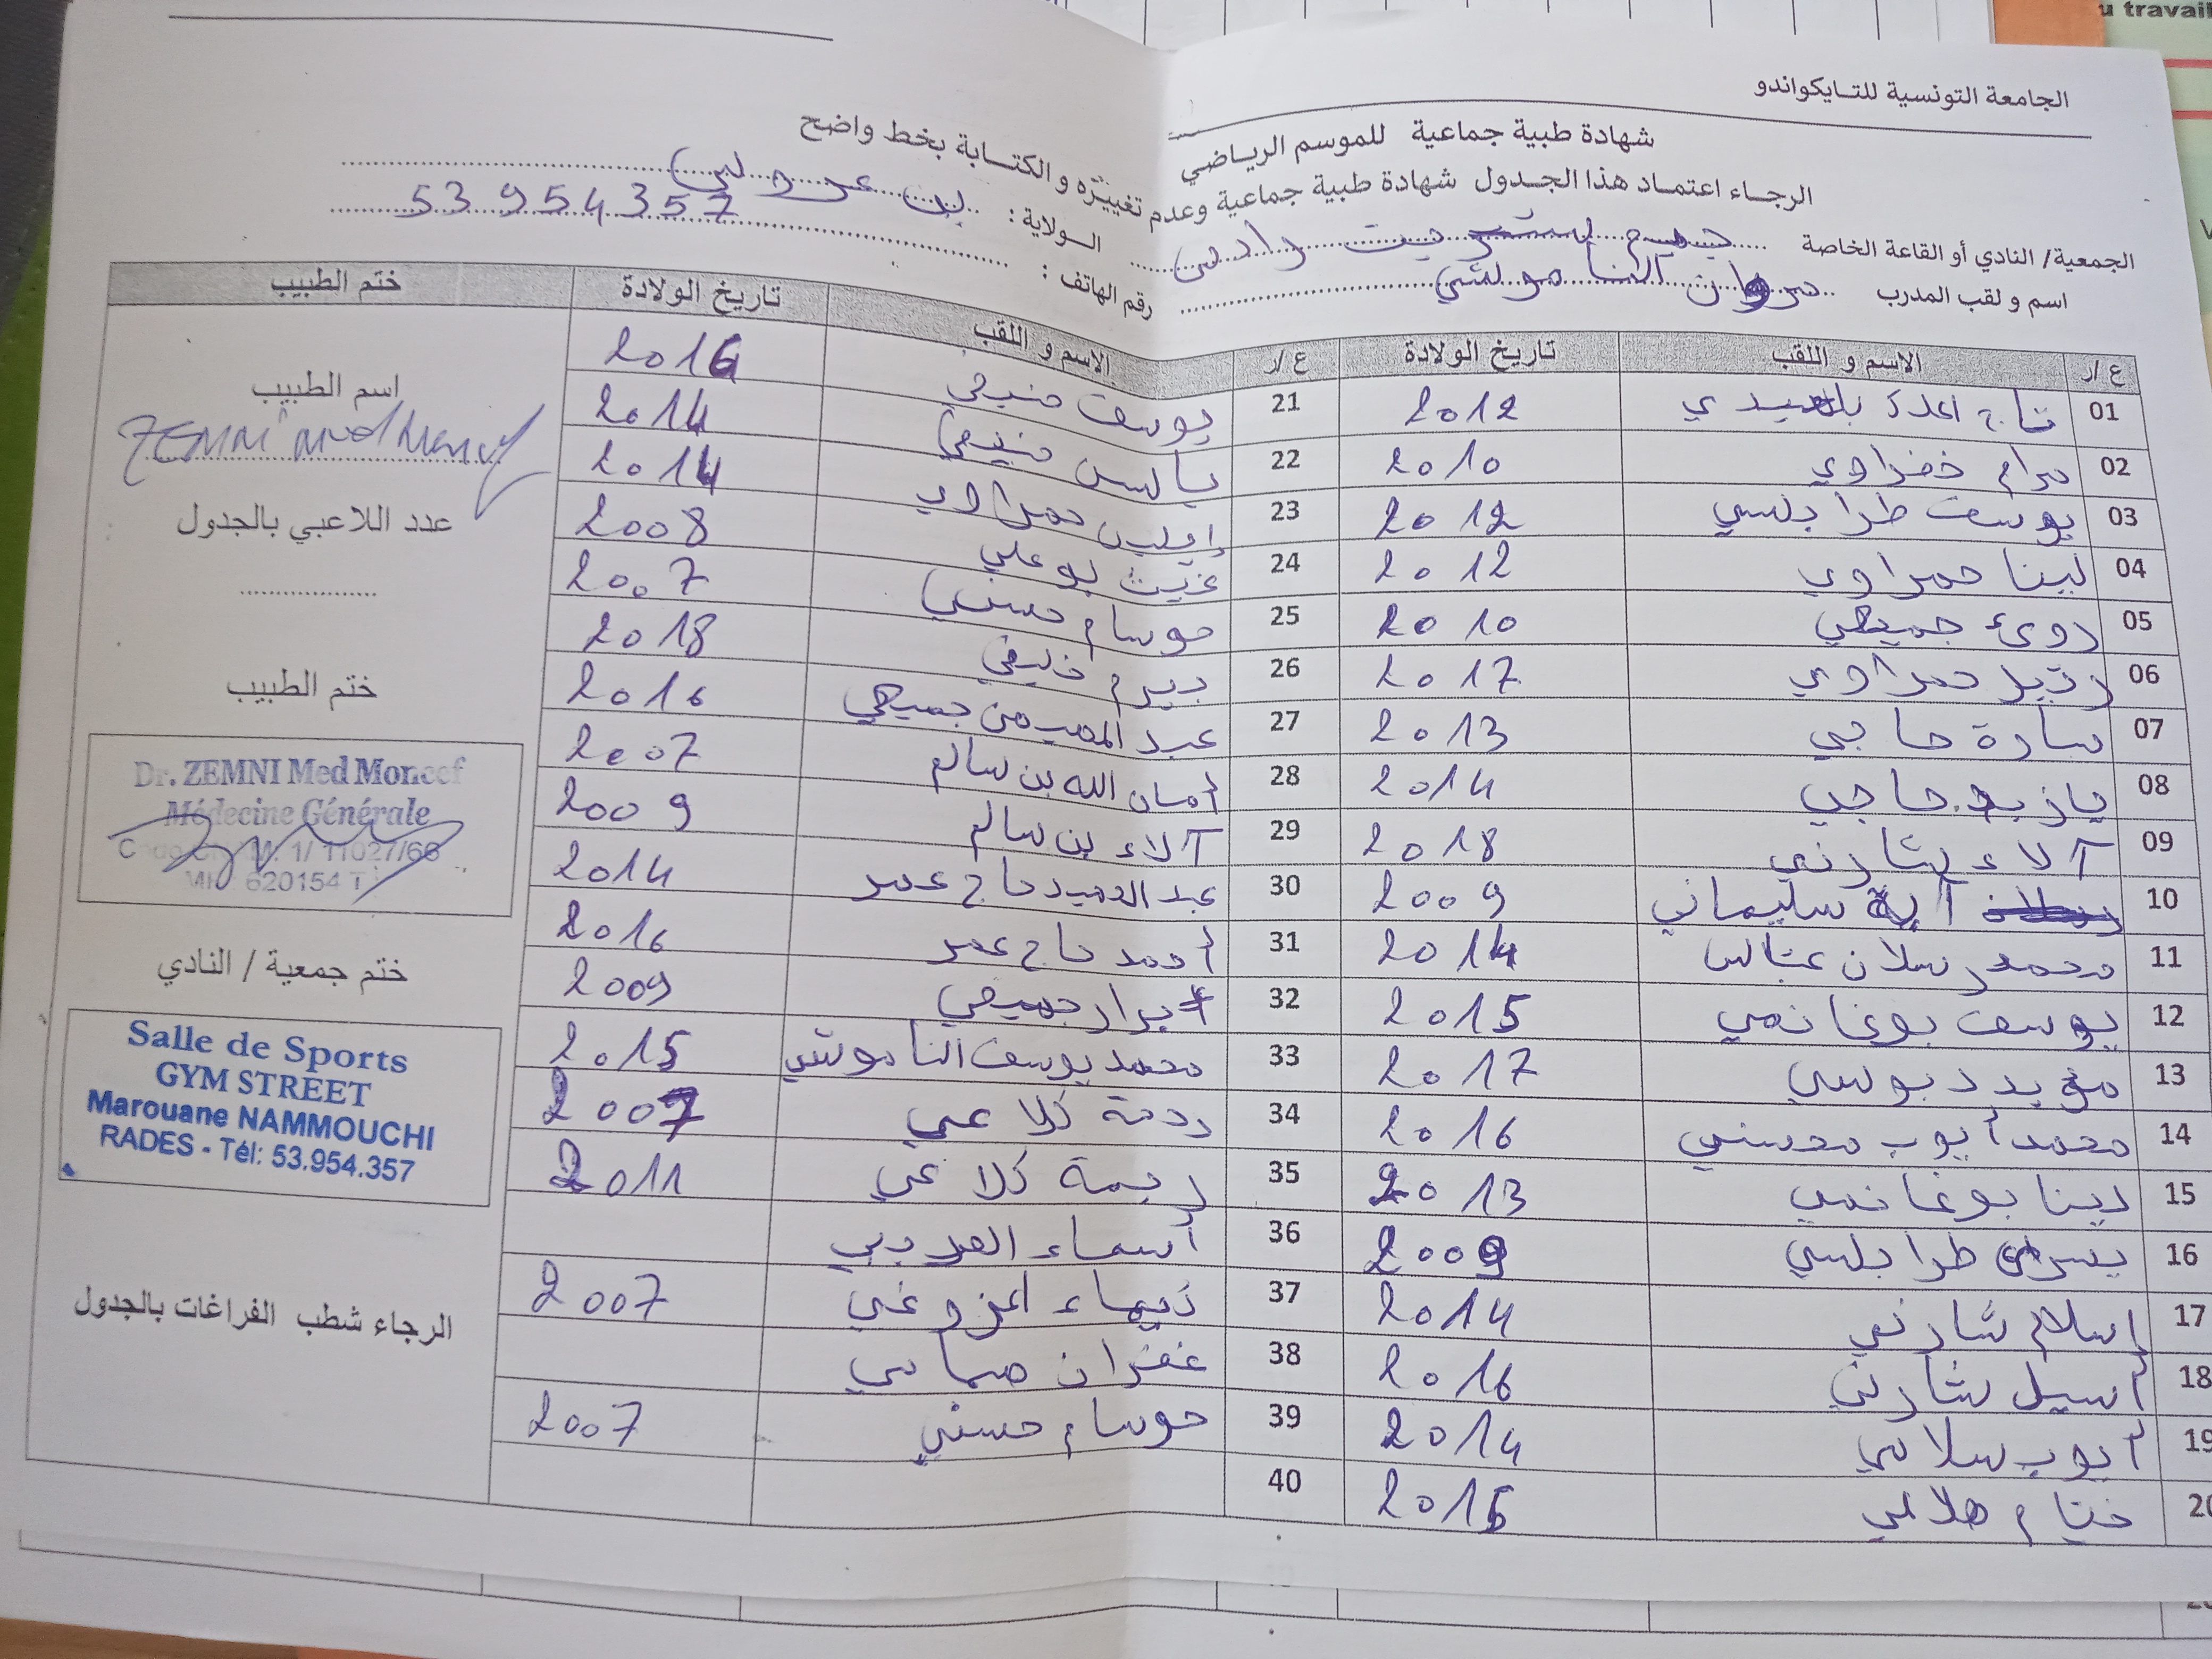 u travail
الجامعة التونسية للتـايكواندو
شهادة طبية جماعية للموسم الرياضي
الرجاء اعتمـاد هذا الجـدول شهادة طبية جماعية وعدم تغييره و الكتـابة بخط واضح
الجمعية/ النادي أو القاعة الخاصة جيم ستريت رادس الـولاية : بن عروس
اسم و لقب المدرب مروان الناموشي رقم الهاتف : 53 954 357
ع/ر الاسم و اللقب تاريخ الولادة
01 تاج 2012
02 مرام خضراوي 2010
03 يوسف طرابلسي 2012
04 لينا حمراوي 2012
05 جميعي 2010
06 حمراوي 2017
07 سارة حاجي 2013
08 حاجي 2014
09 آلاء شارني 2018
10 آية سليماني 2009
11 محمد رسلان عباس 2014
12 يوسف بوغانمي 2015
13 مؤيد دبوسي 2017
14 محمد أيوب محسني 2016
15 دينا بوغانمي 2013
16 يسرى طرابلسي 2009
17 إسلام شارني 2014
18 أسيل شارني 2016
19 أيوب سلامي 2014
20 ختام هلالي 2015
ع/ر الاسم و اللقب تاريخ الولادة
21 يوسف منيعي 2016
22 ياسين منيعي 2014
23 إيلين حمراوي 2014
24 غيث بوعلي 2008
25 حوسام حسني 2007
26 بيرم خليفي 2018
27 عبد المهيمن جميعي 2016
28 أمان الله بن سالم 2007
29 آلاء بن سالم 2009
30 عبد الحميد حاج عمر 2014
31 أحمد حاج عمر 2016
32 جميعي 2009
33 محمد يوسف الناموشي 2015
34 رحمة كلاعي 2007
35 ريمة كلاعي 2011
36 أسماء
37 2007
38 غفران
39 حوسام حسني 2007
40
ختم الطبيب
اسم الطبيب
ZEMNI Med Moncef
عدد اللاعبي بالجدول
ختم الطبيب
Dr. ZEMNI Med Moncef
Médecine Générale
1/ 11027/66
620154 T
ختم جمعية / النادي
Salle de Sports
GYM STREET
Marouane NAMMOUCHI
RADES - Tél: 53.954.357
الرجاء شطب الفراغات بالجدول